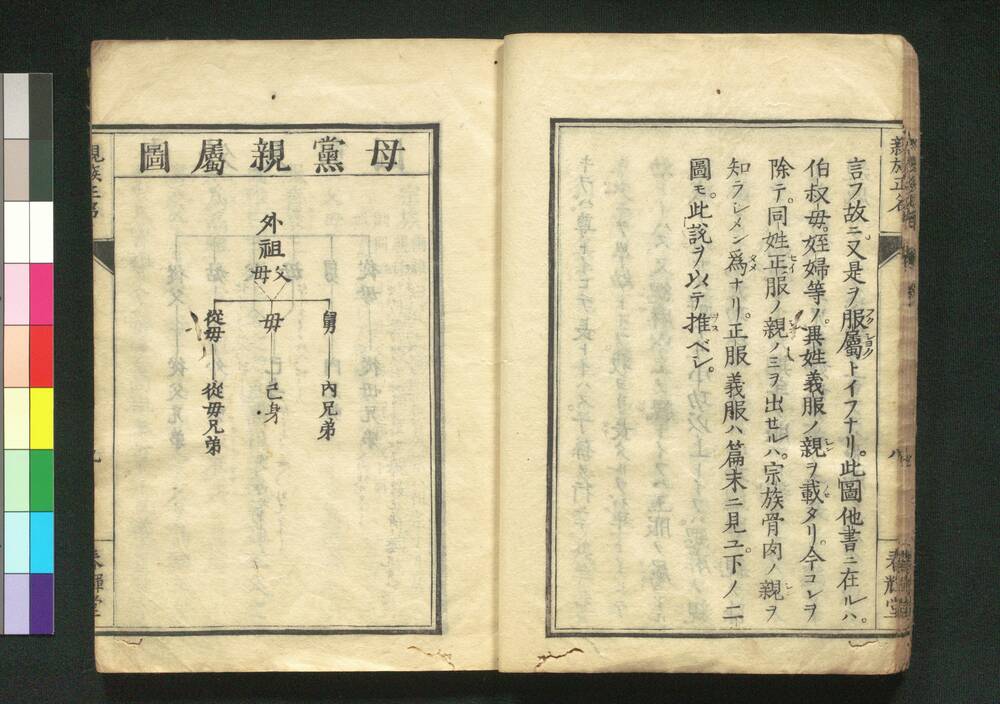 言フ故ニ又是ヲ服屬トイフナリ。此圖他書ニ在ルハ。
伯叔母。姪婦等ノ。異姓義服ノ親ヲ載タリ。今コレヲ
除テ。同姓正服ノ親ノミヲ出セルハ。宗族骨肉ノ親ヲ
知ラシメン爲ナリ。正服義服ハ篇末ニ見ユ。下ノ二
圖モ。此說ヲ以テ推ベシ。
親族正名
八
春輝堂
母黨親屬圖
外祖父母
舅 內兄弟
母 己身
從母 從母兄弟
親族正名
九
春輝堂